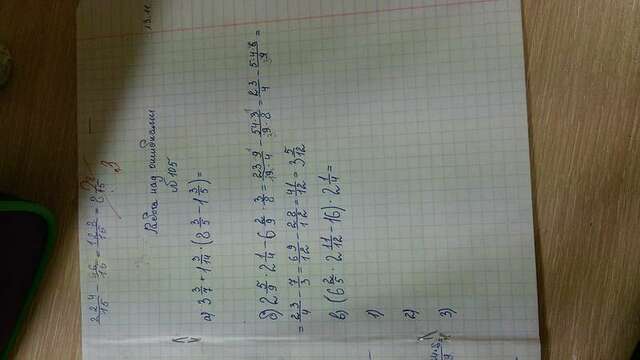 224/15 - 96/15 = 128/15 = 8 8/15
3
Работа над ошибками 13.11
№ 105
а) 3 3/7 + 1 3/14 · (8 3/5 - 1 3/5) =
б) 2 5/9 · 2 1/4 - 6 2/9 · 3/8 = 23·9/9·4 - 54·3/9·8 = 23/4 - 5·4·8/9 =
= 23/4 - 7/3 = 69/12 - 28/12 = 41/12 = 3 5/12
в) (6 2/5 · 2 11/12 - 16) · 2 1/4 =
1)
2)
3)